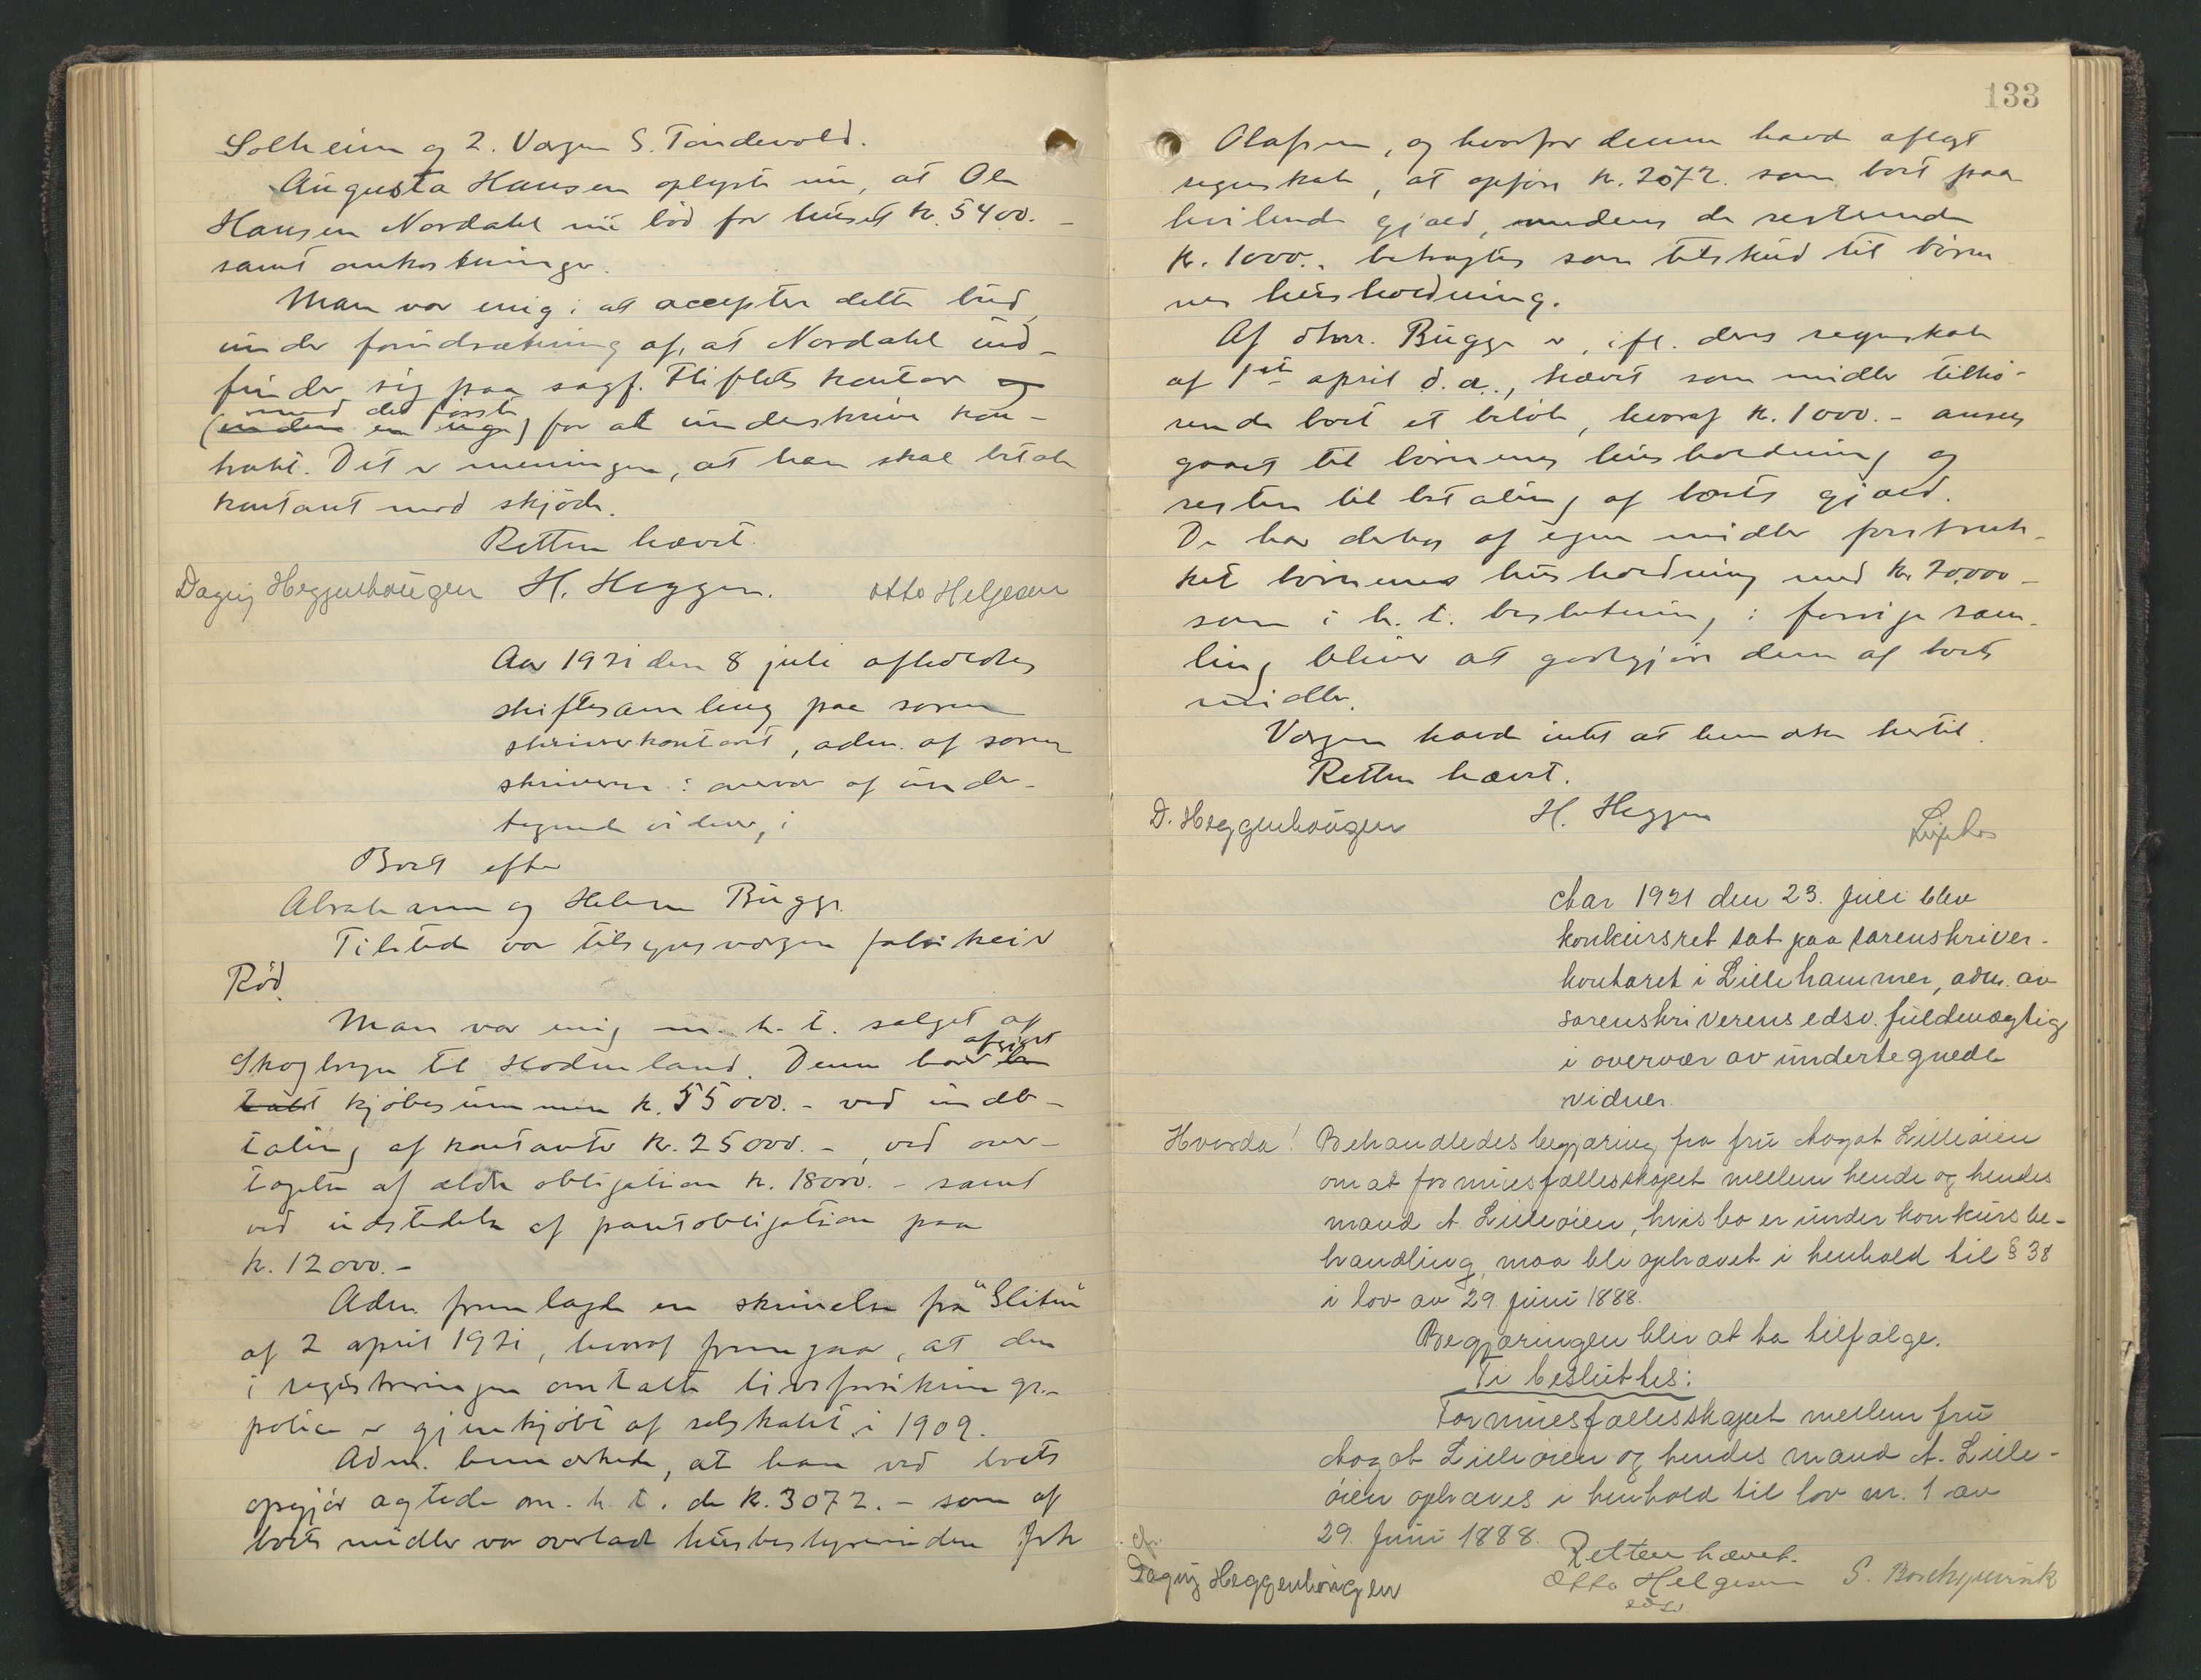 Solheim og 2. Værge S. Tandevold.
Augusta Hansen oplyste nu, at Ole
Hansen Nordahl nu bød for huset kr. 5400.-
samt omkostninger.
Man var enig i at acceptere dette bud
under forudsætning af, at Nordahl ind-
finder sig paa sagf. Fliflets kontor og
med det første
(inden en uge) for at underskrive kon-
trakt. Det er meningen, at han skal betale
kontant mod skjøde.
Retten hævet.
Dagny Heggenhougen H. Heggen. Otto Helgesen
Aar 1921 den 8 juli afholdtes
skiftesamling paa soren
skriverkontoret, adm. af soren
skriveren i overvær af under-
tegnede vidner, i
Boet efter
Abraham og Helene Bugge.
Tilstede var tilsynsværgen fabrikeier
Röd.
Man var enig m. h. t. salget af
Skogbryn til Hodneland. Denne har be
afgjort
talt kjøbesummen kr. 55000.- ved indb-
taling af kontante kr. 25000.-, ved over-
tagelse af ældre obligation kr. 18000.- samt
ved udstedelse af pantobligation paa
kr. 12000.-
Adm. fremlagde en skrivelse fra "Gliten"
af 2 april 1921, hvoraf fremgaar, at den
i registreringen omtalte livsforsikrings-
police er gjenkjøbt af selskabet i 1909.
Adm. bemærkede, at han ved boets
opgjör agtede m. h. t. de kr. 3072.- som af
boets midler var overladt husbestyrerinden frk
133
Olafsen, og hvorfor denne havde aflagt
regnskab, at opføre kr. 2072. som boet paa
hvilende gjæld, medens de resterende
kr. 1000.- betragtes som tilskud til børne
nes husholdning.
Af dhrr. Bugge er, ifl. deres regnskab
af 1ste april d.a., hævet som midler tilhø-
rende boet et beløb, hvoraf kr. 1000.- ansees
gaaet til børnenes husholdning og
resten til betaling af boets gjæld.
De har derhos af egne midler forstræk-
ket børnenes husholdning med kr. 20.000-
som i h. t. beslutning i forrige sam-
ling bliver at godtgjøre dem af boets
midler.
Værgen havde intet at bemærke hertil.
Retten hævet.
D. Heggenhougen H. Heggen
Aar 1921 den 23. Juli blev
konkursret sat paa sorenskriver-
kontoret i Lillehammer, adm. av
sorenskriverens edsv. fuldmægtig
i overvær av undertegnede
vidner.
Hvorda! Behandledes begjæring fra fru Aagot Lilleøien
om at formuesfællesskapet mellem hende og hendes
mand A. Lilleøien, hvis bo er under konkursbe-
handling, maa bli ophævet i henhold til § 38
i lov av 29 juni 1888.
Begjæringen blir at ta tilfølge.
Ti besluttes:
Formuesfællesskapet mellem fru
Aagot Lilleøien og hendes mand A. Lille-
øien ophæves i henhold til lov nr. 1 av
29. Juni 1888.
Retten hævet.
Dagny Heggenhougen Otto Helgesen S. Borchgrevink
edsv